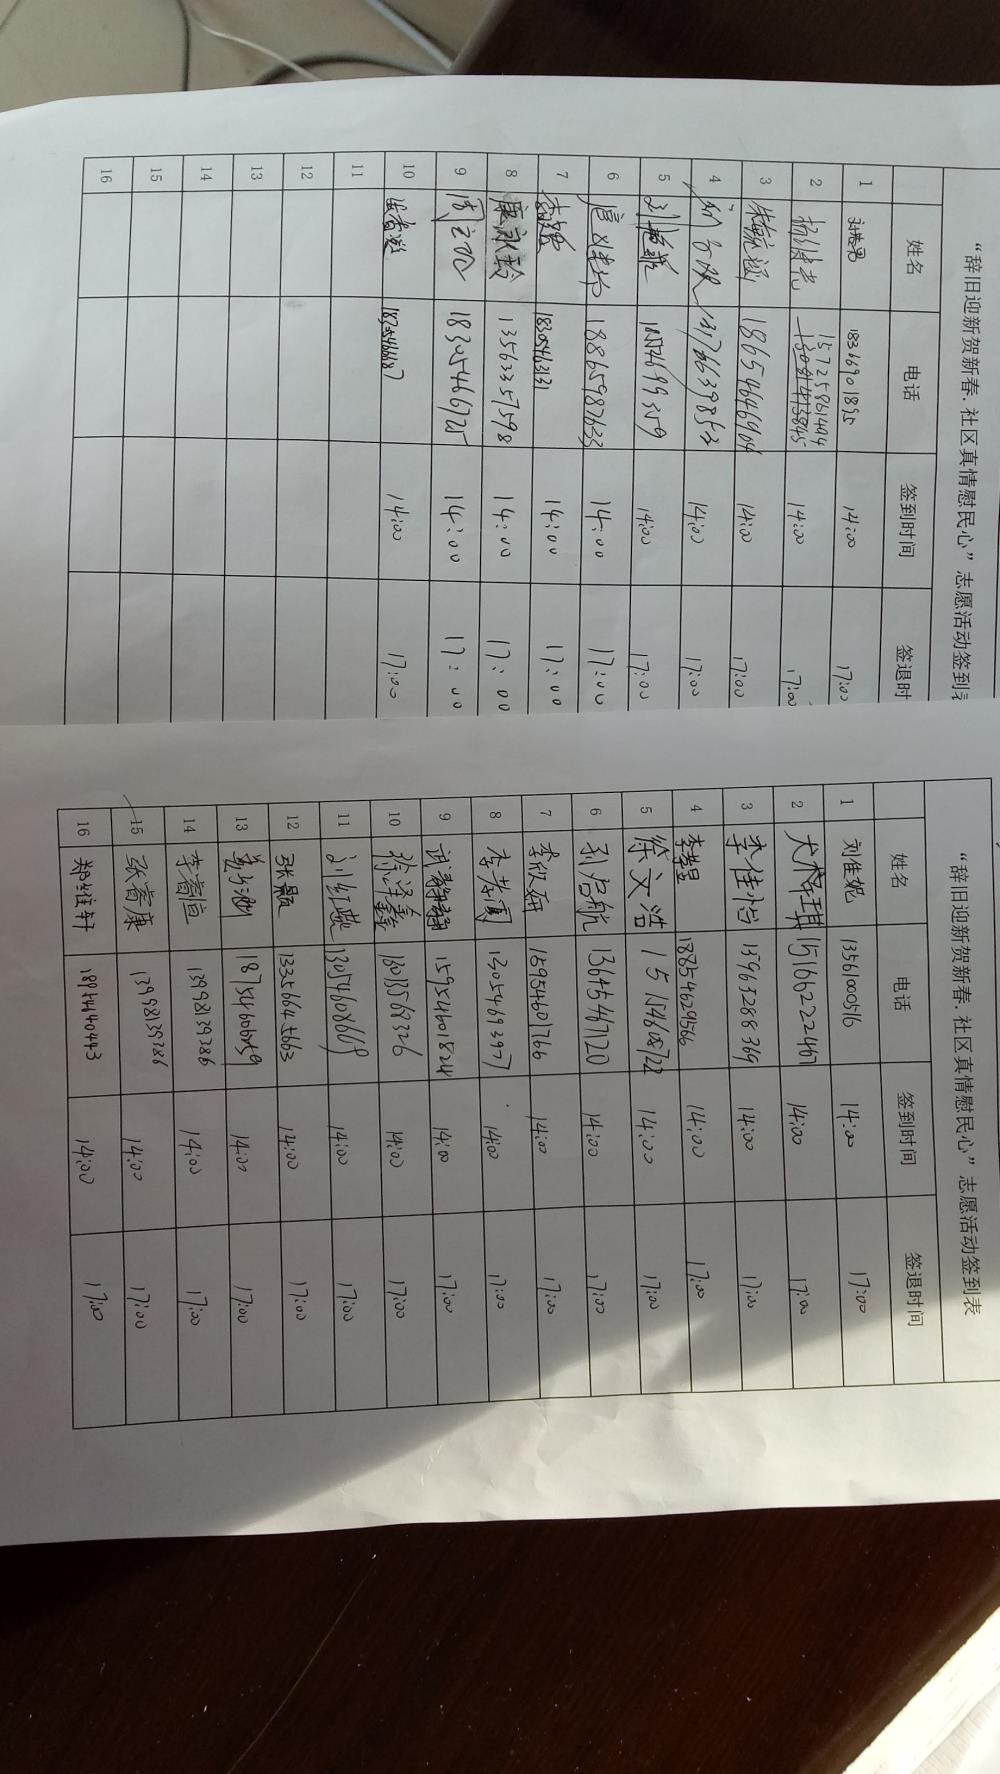 “辞旧迎新贺新春.社区真情慰民心”志愿活动签到
姓名 电话 签到时间 签退时
1 18366901895 14:00 17:00
2 15725861404 14:00 17:00
3 18654646904 14:00 17:00
4 14:00 17:00
5 刘 14:00 17:00
6 18865987633 14:00 17:00
7 李 18305463131 14:00 17:00
8 康永龄 13563357598 14:00 17:00
9 周 18305466725 14:00 17:00
10 14:00 17:00
11
12
13
14
15
16
“辞旧迎新贺新春.社区真情慰民心”志愿活动签到表
姓名 电话 签到时间 签退时间
1 刘佳妮 13561000516 14:00 17:00
2 15166222467 14:00 17:00
3 李佳怡 13963288369 14:00 17:00
4 李 18854629566 14:00 17:00
5 徐文浩 15154608722 14:00 17:00
6 刘启航 13645467120 14:00 17:00
7 李欣妍 15954601766 14:00 17:00
8 李 13054693977 14:00 17:00
9 15954601824 14:00 17:00
10 徐泽鑫 14:00 17:00
11 刘红燕 13054608669 14:00 17:00
12 张 13356645663 14:00 17:00
13 18754606059 14:00 17:00
14 李睿恒 13998139286 14:00 17:00
15 张睿康 13998139286 14:00 17:00
16 郑维轩 14:00 17:00